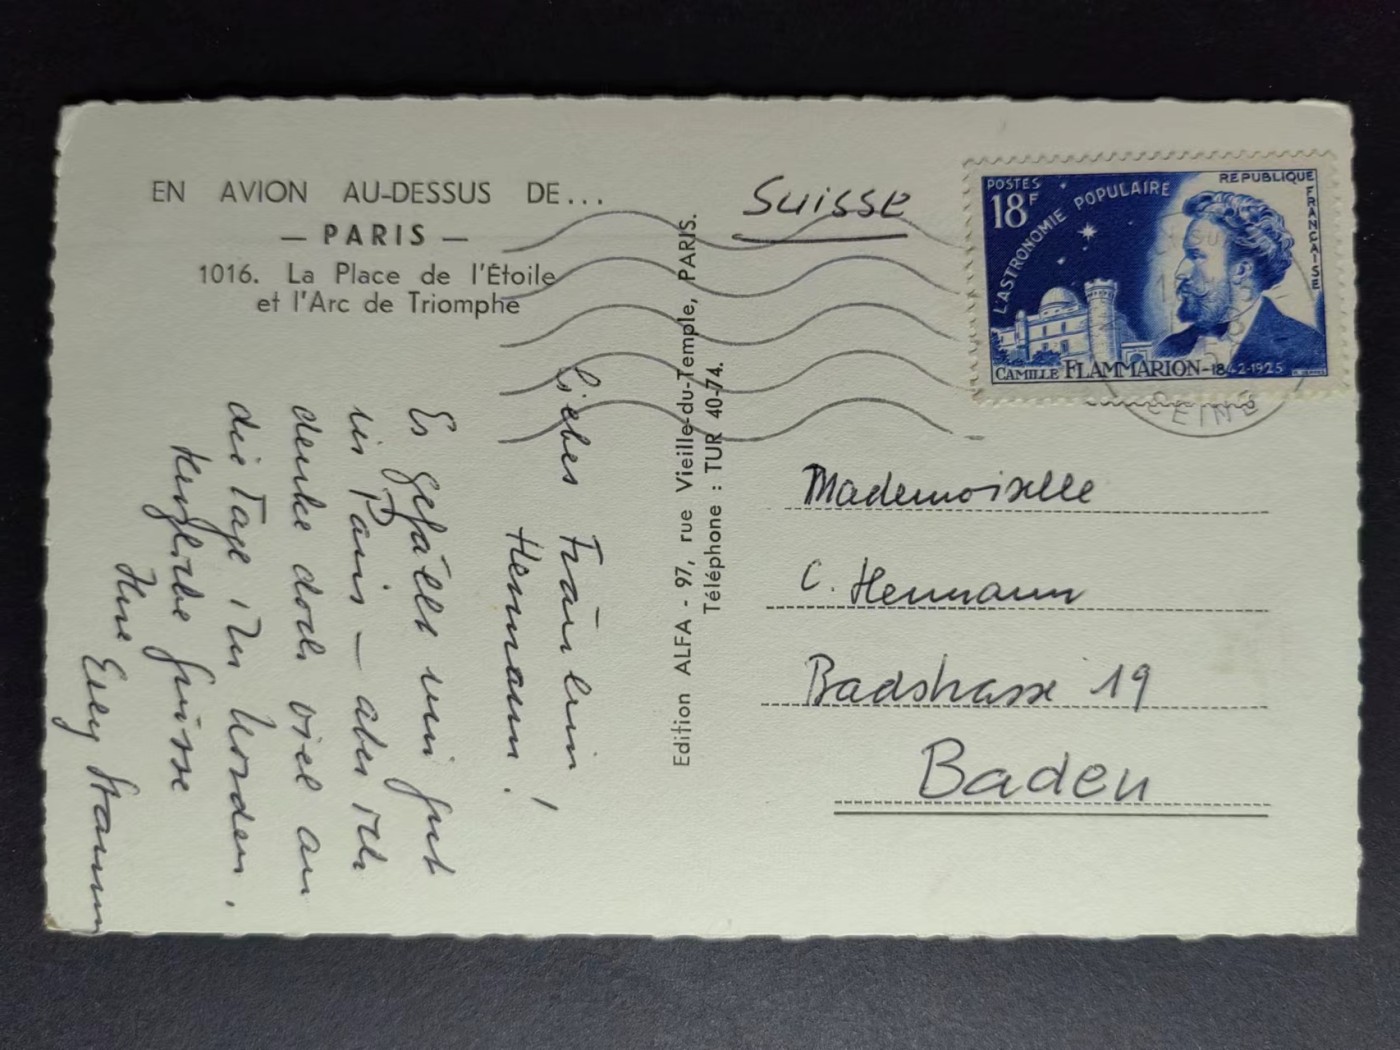 EN AVION AU-DESSUS DE...
— PARIS —
1016. La Place de l'Étoile
et l'Arc de Triomphe
Liebes Fräulein
Hermann!
Es gefällt mir gut
in Paris — aber ich
denke doch viel an
die Tage im Norden.
Herzliche Grüsse
Ihre Elly
Edition ALFA - 97, rue Vieille-du-Temple, PARIS.
Téléphone : TUR 40-74.
Suisse
POSTES
18F
L'ASTRONOMIE POPULAIRE
REPUBLIQUE
FRANÇAISE
CAMILLE FLAMMARION-1842-1925
Mademoiselle
C. Hermann
Badstrasse 19
Baden